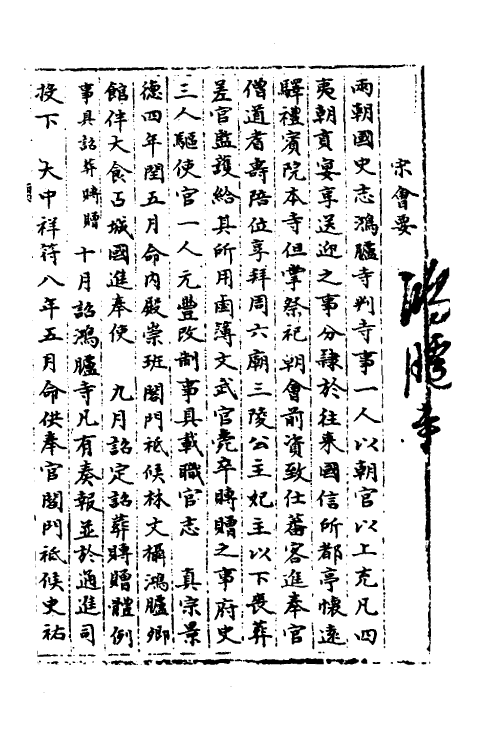 宋會要
鴻臚寺
兩朝國史志鴻臚寺判寺事一人以朝官以上充凡四
夷朝貢宴享送迎之事分隸於往來國信所都亭懷遠
驛禮賓院本寺但掌祭祀朝會前資致仕蕃客進奉官
僧道耆壽陪位享拜周六廟三陵公主妃主以下喪葬
差官監護給其所用鹵簿文武官薨卒賻贈之事府史
三人驅使官一人元豐改制事具載職官志 真宗景
德四年閏五月命內殿崇班閤門祗候林文檥鴻臚卿
館伴大食占城國進奉使 九月詔定詔葬賻贈體例
事具詔葬賻贈 十月詔鴻臚寺凡有奏報並於通進司
投下 大中祥符八年五月命供奉官閤門祗候史祐